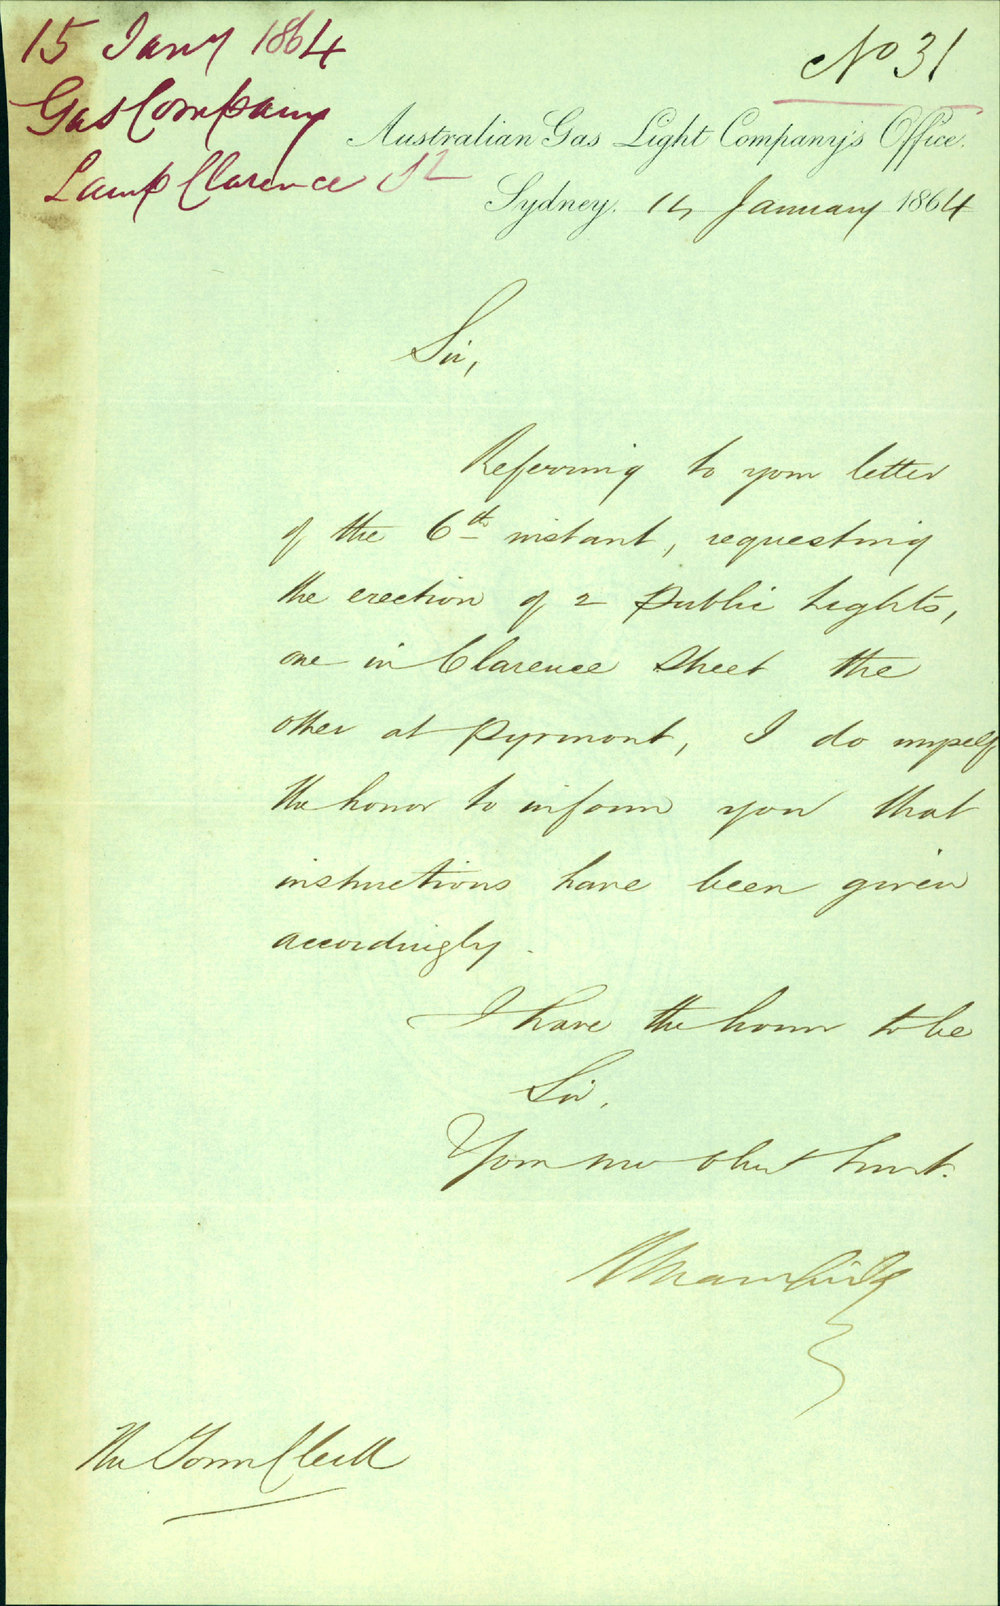 15 Jany 1864
Gas Company
Lamp Clarence St
No 31
Australian Gas Light Company's Office.
Sydney. 14 January 1864
Sir,
Referring to your letter
of the 6th instant, requesting
the erection of 2 Public Lights,
one in Clarence Street the
other at Pyrmont, I do myself
the honor to inform you that
instructions have been given
accordingly.
I have the honor to be
Sir,
Your mo obnt servt.
The Town Clerk